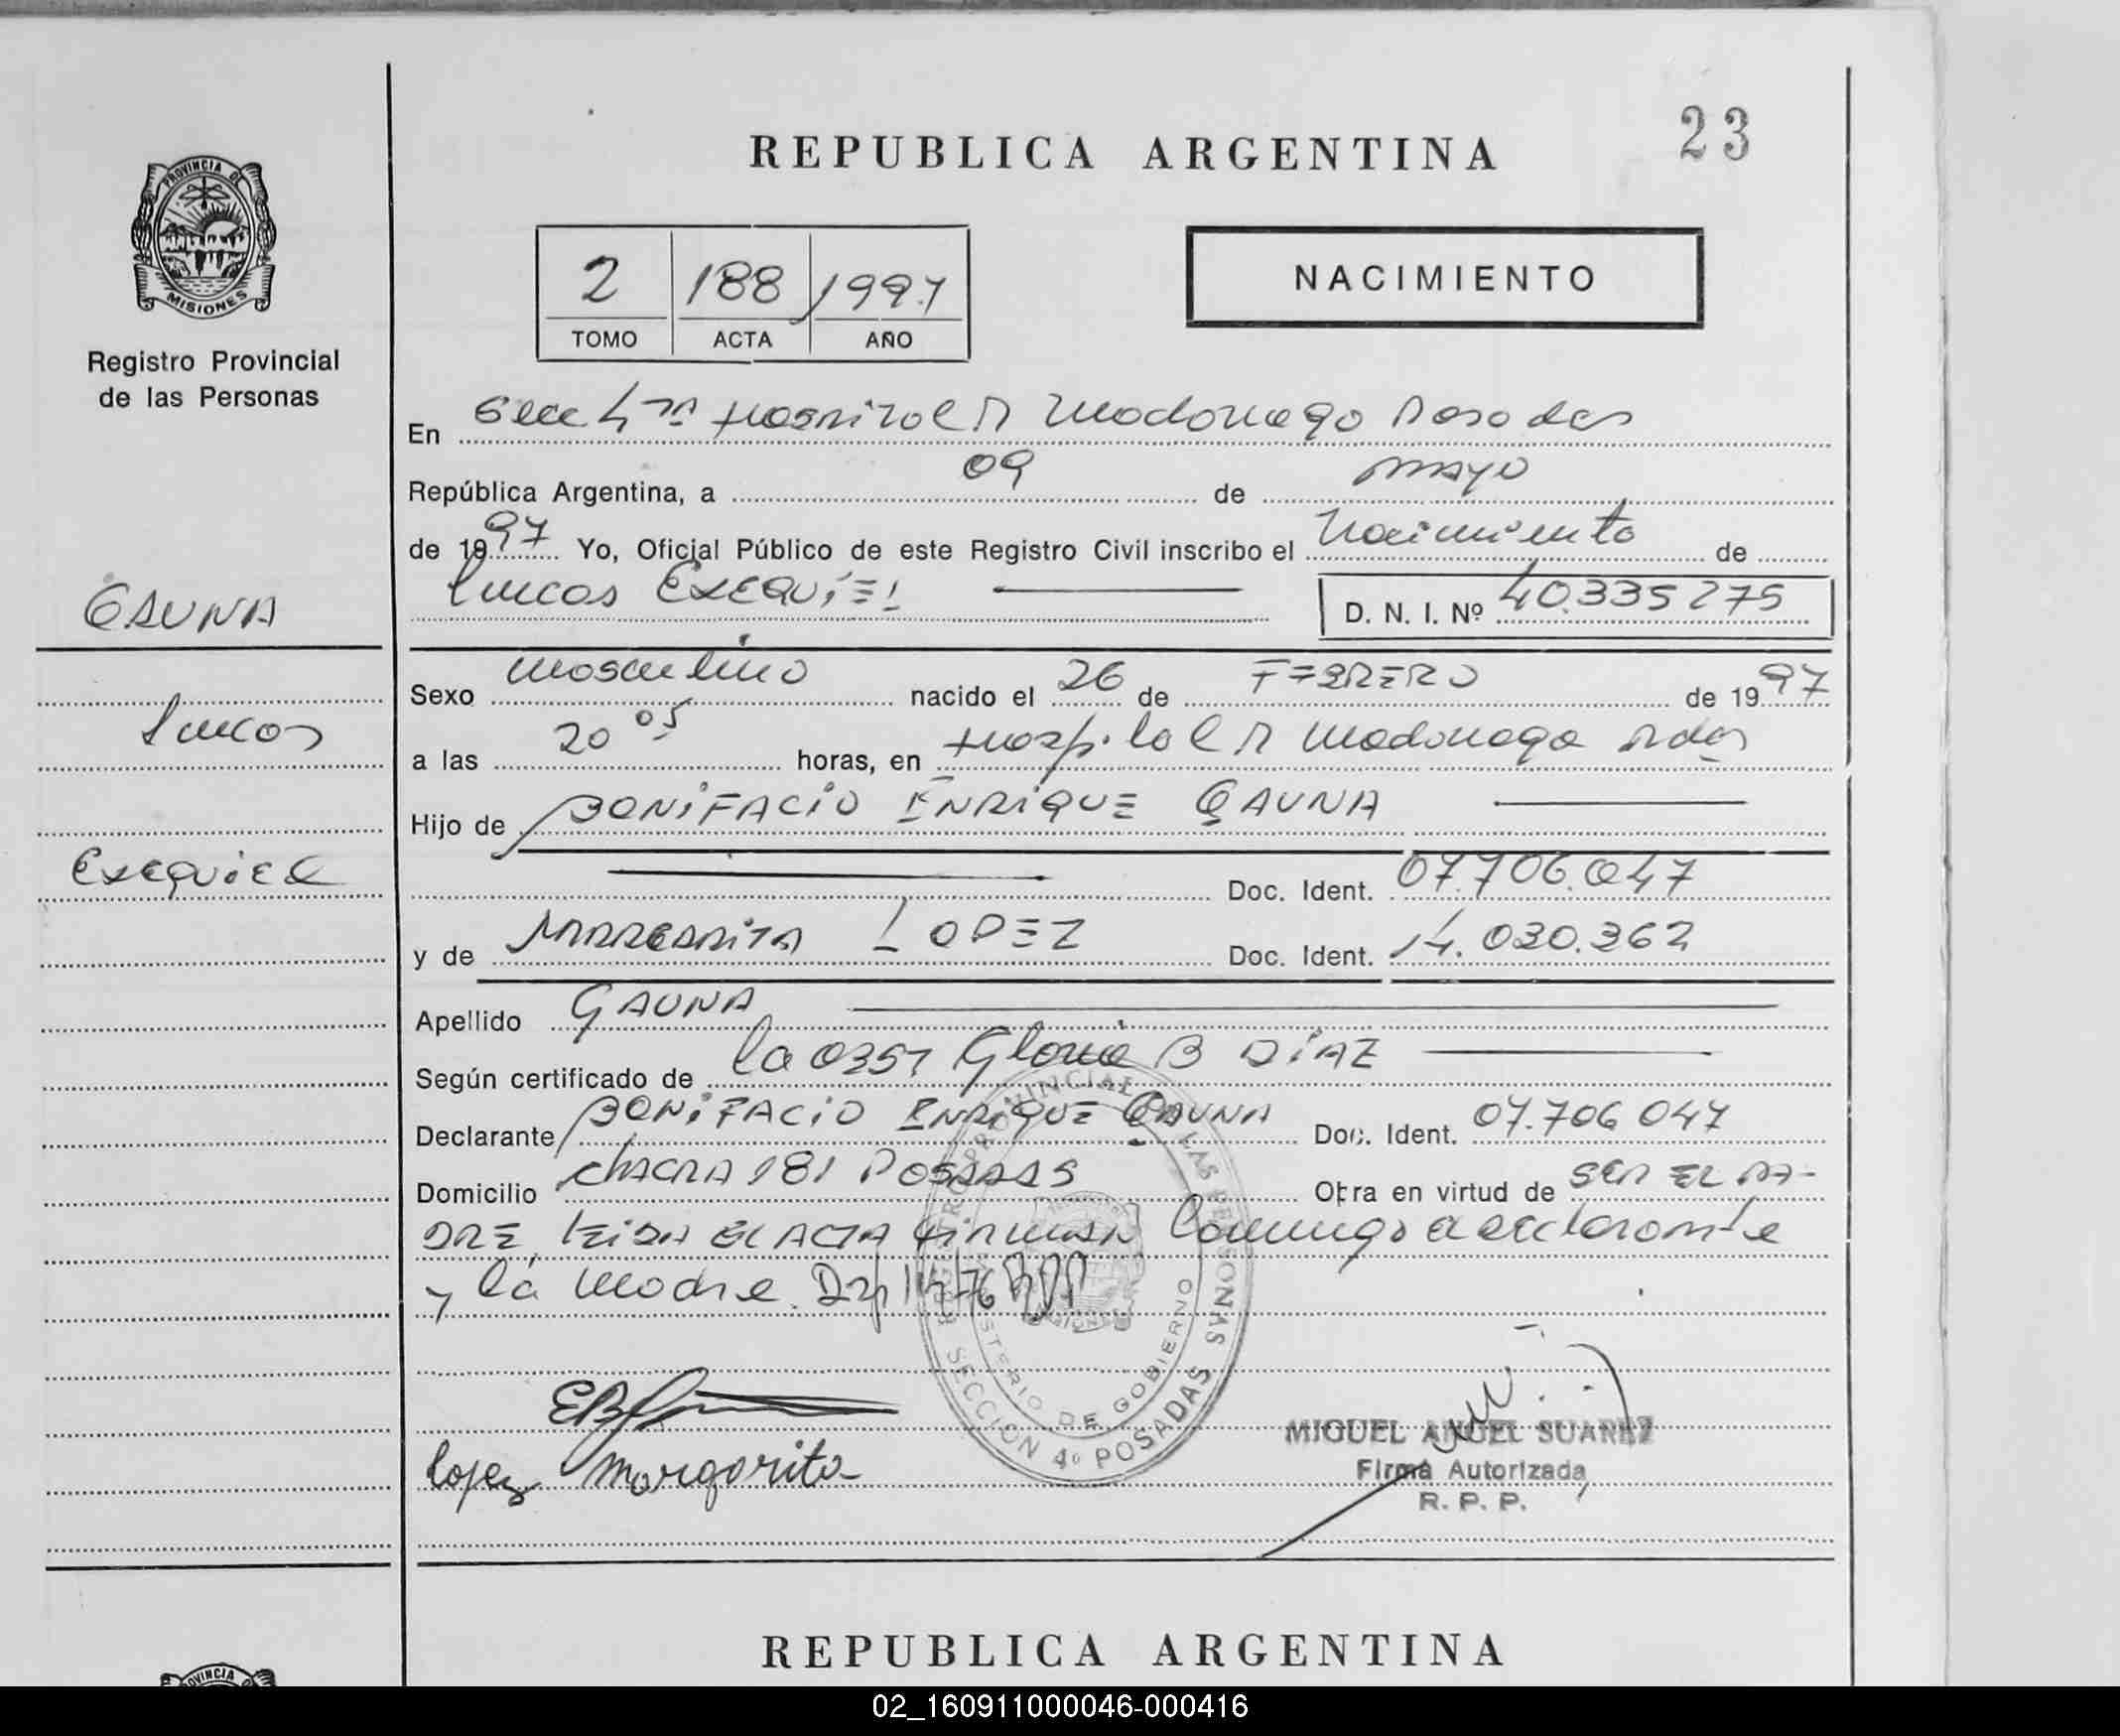 REPUBLICA ARGENTINA
23
PROVINCIA DE
MISIONES
Registro Provincial
de las Personas
2 188 1997
TOMO ACTA AÑO
NACIMIENTO
En Secc 4ta Hospital R Madariaga Posadas
República Argentina, a 09 de mayo
de 1997 Yo, Oficial Público de este Registro Civil inscribo el Nacimiento de
Lucas EXEQUIEL
D. N. I. Nº 40.335275
GAUNA
Lucas
Exequiel
Sexo masculino nacido el 26 de FEBRERO de 1997
a las 20 05 horas, en Hospital R Madariaga Pdas
Hijo de BONIFACIO ENRIQUE GAUNA
Doc. Ident. 07.706.047
y de MARGARITA LOPEZ Doc. Ident. 14.030.362
Apellido GAUNA
Según certificado de la 0357 Gloria B DIAZ
Declarante BONIFACIO ENRIQUE GAUNA Doc. Ident. 07.706 047
Domicilio CHACRA 181 POSADAS Obra en virtud de SER EL PA-
DRE LEIDA EL ACTA FIRMAN Conmigo el declarante
y la Madre.
REGISTRO PROVINCIAL DE LAS PERSONAS
MINISTERIO DE GOBIERNO
SECCION 4º POSADAS
Lopez Margarita
MIGUEL ANGEL SUAREZ
Firma Autorizada
R. P. P.
REPUBLICA ARGENTINA
PROVINCIA
02_160911000046-000416